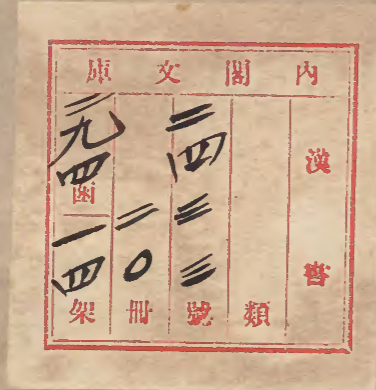 內閣文庫
漢書
類
二四三三號
二〇冊
二九四函
一四架